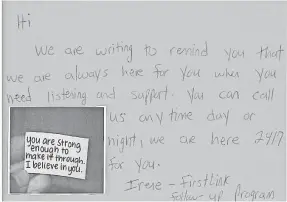 Hi
We are writing to remind you that
we are always here for you when you
need listening and support. You can call
us any time day or
night, we are here 24/7
for you.
Irene - Firstlink
follow-up Program
you are strong
enough to
make it through.
I believe in you.